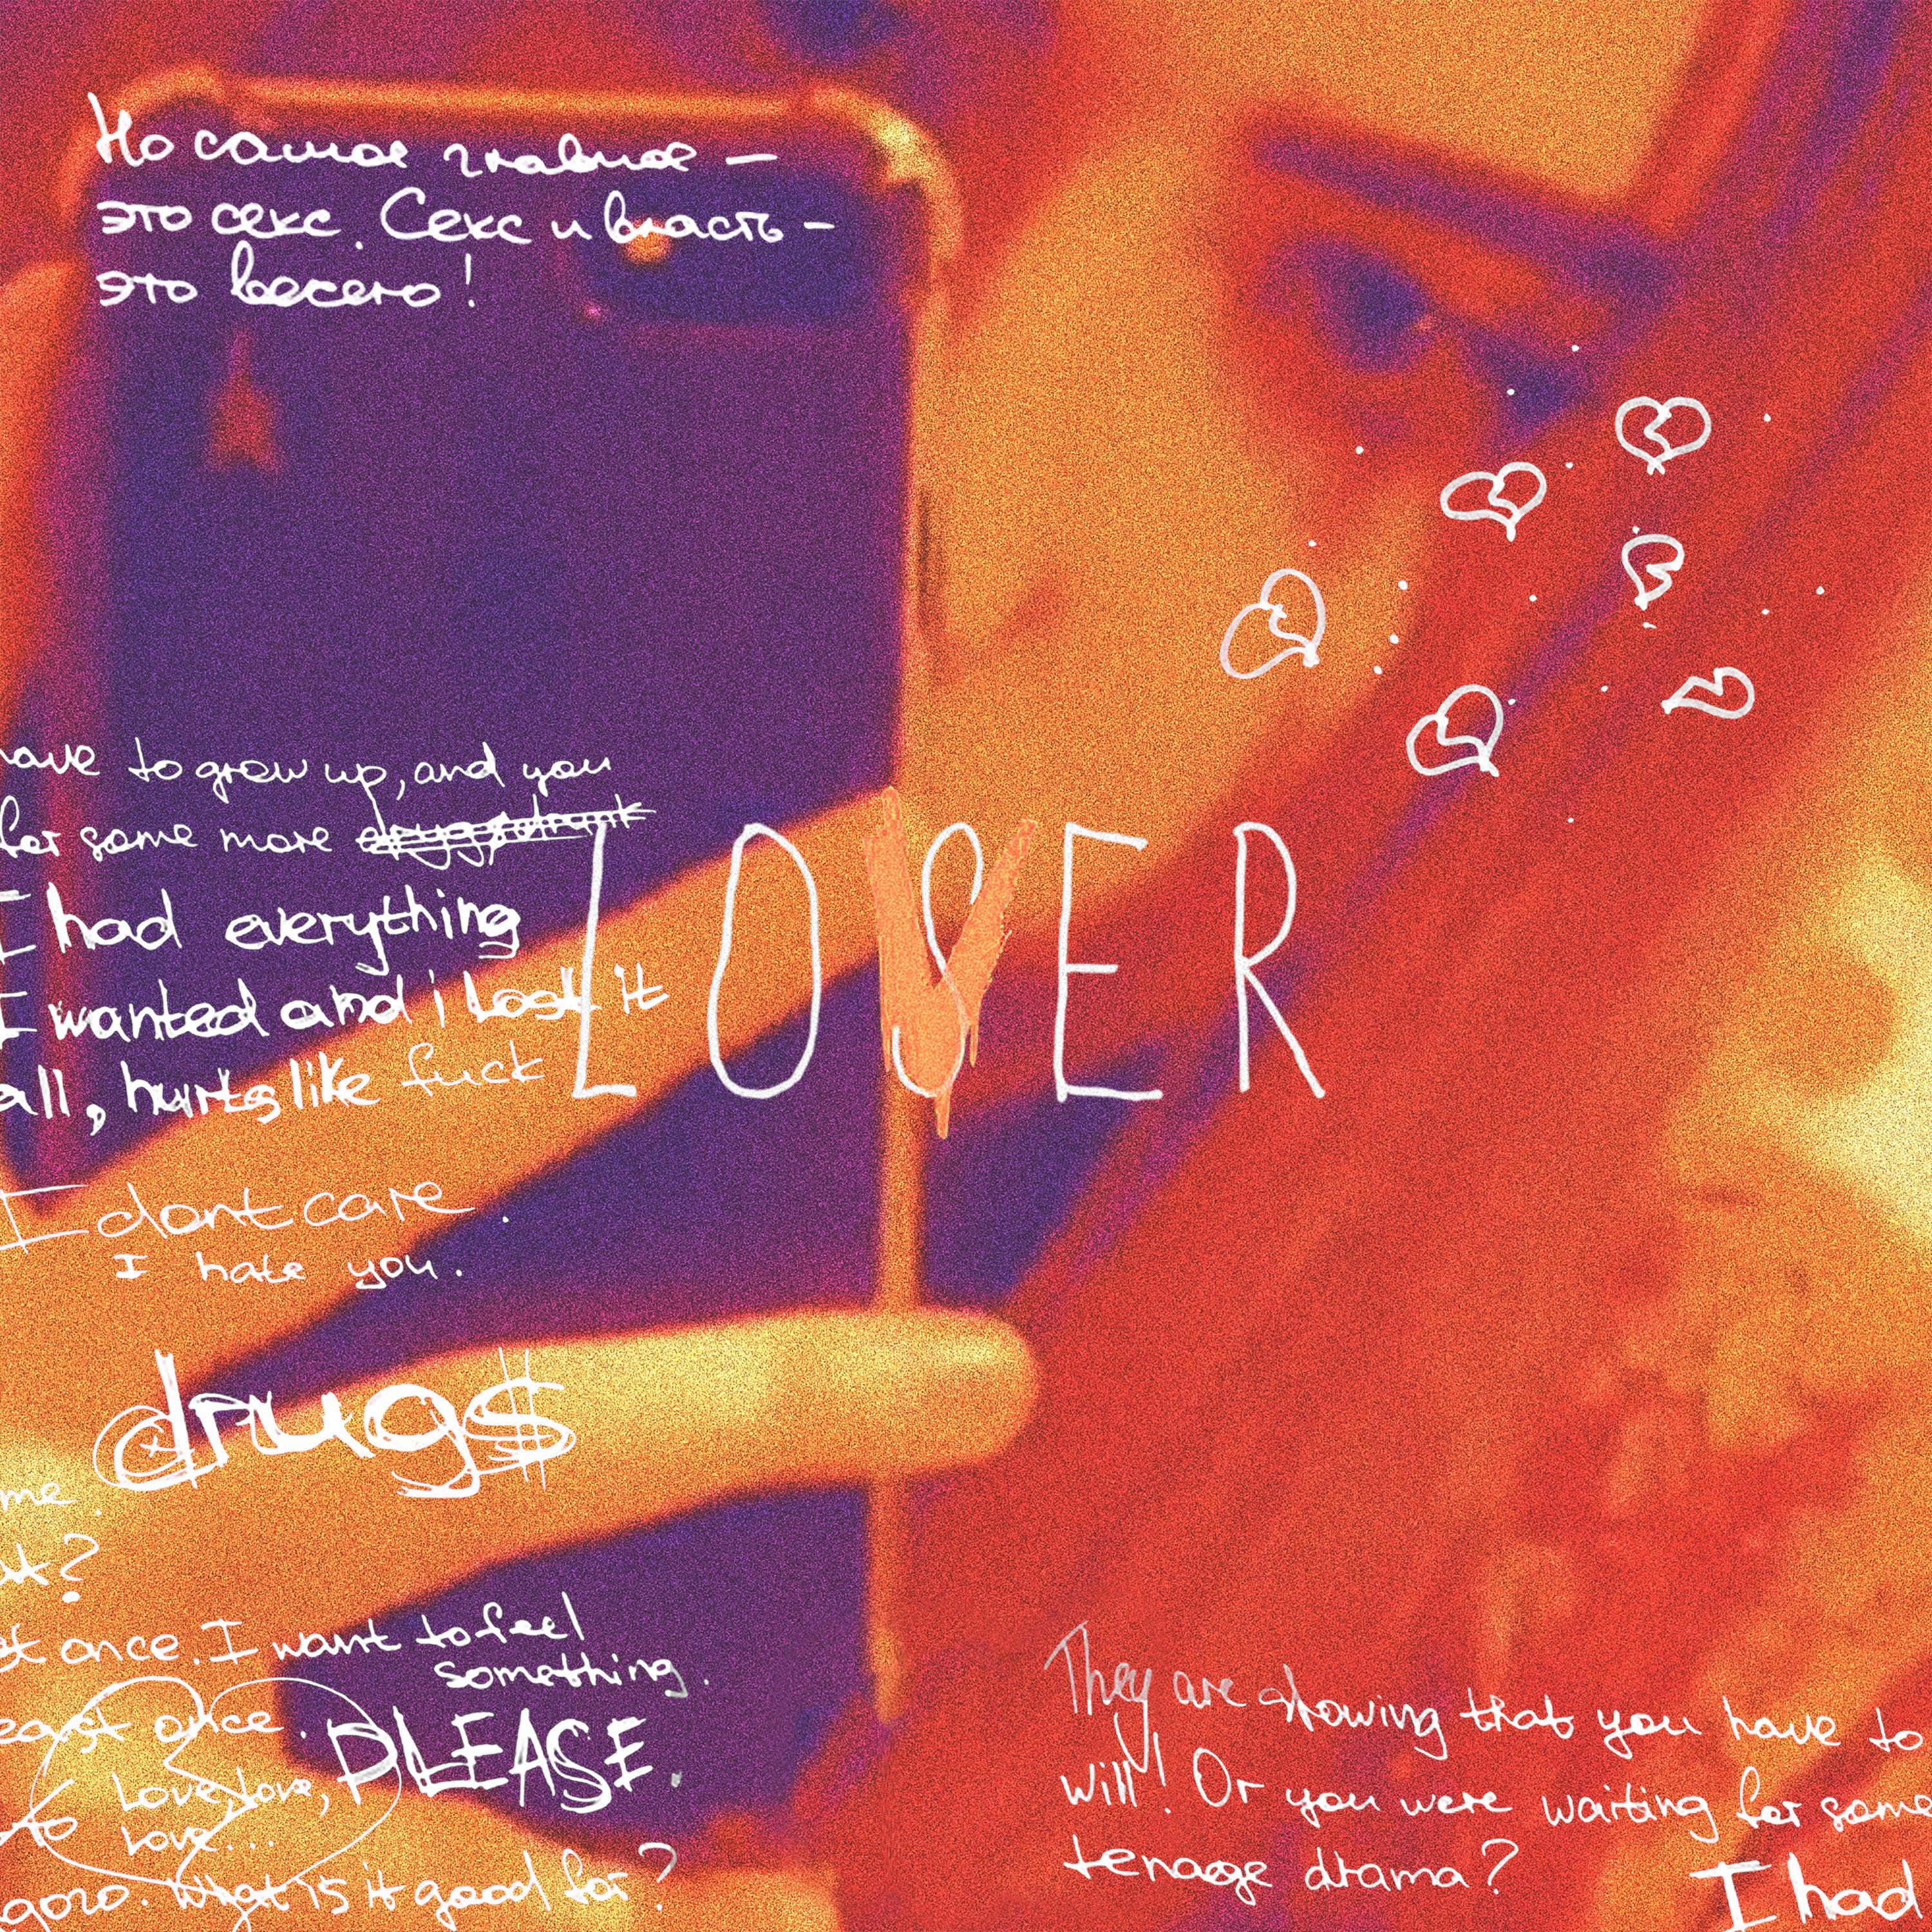 Но самое главное –
это секс. Секс и власть –
это весело!
have to grow up, and you
for some more
I had everything
I wanted and i lost it
all, hurts like fuck
LOVER
I dont care.
I hate you.
drug$
me.
ut?
at once. I want to feel
something.
east once.
PLEASE.
Love, love,
to love...
What is it good for?
They are showing that you have to
will! Or you were waiting for some
tenage drama?
I had